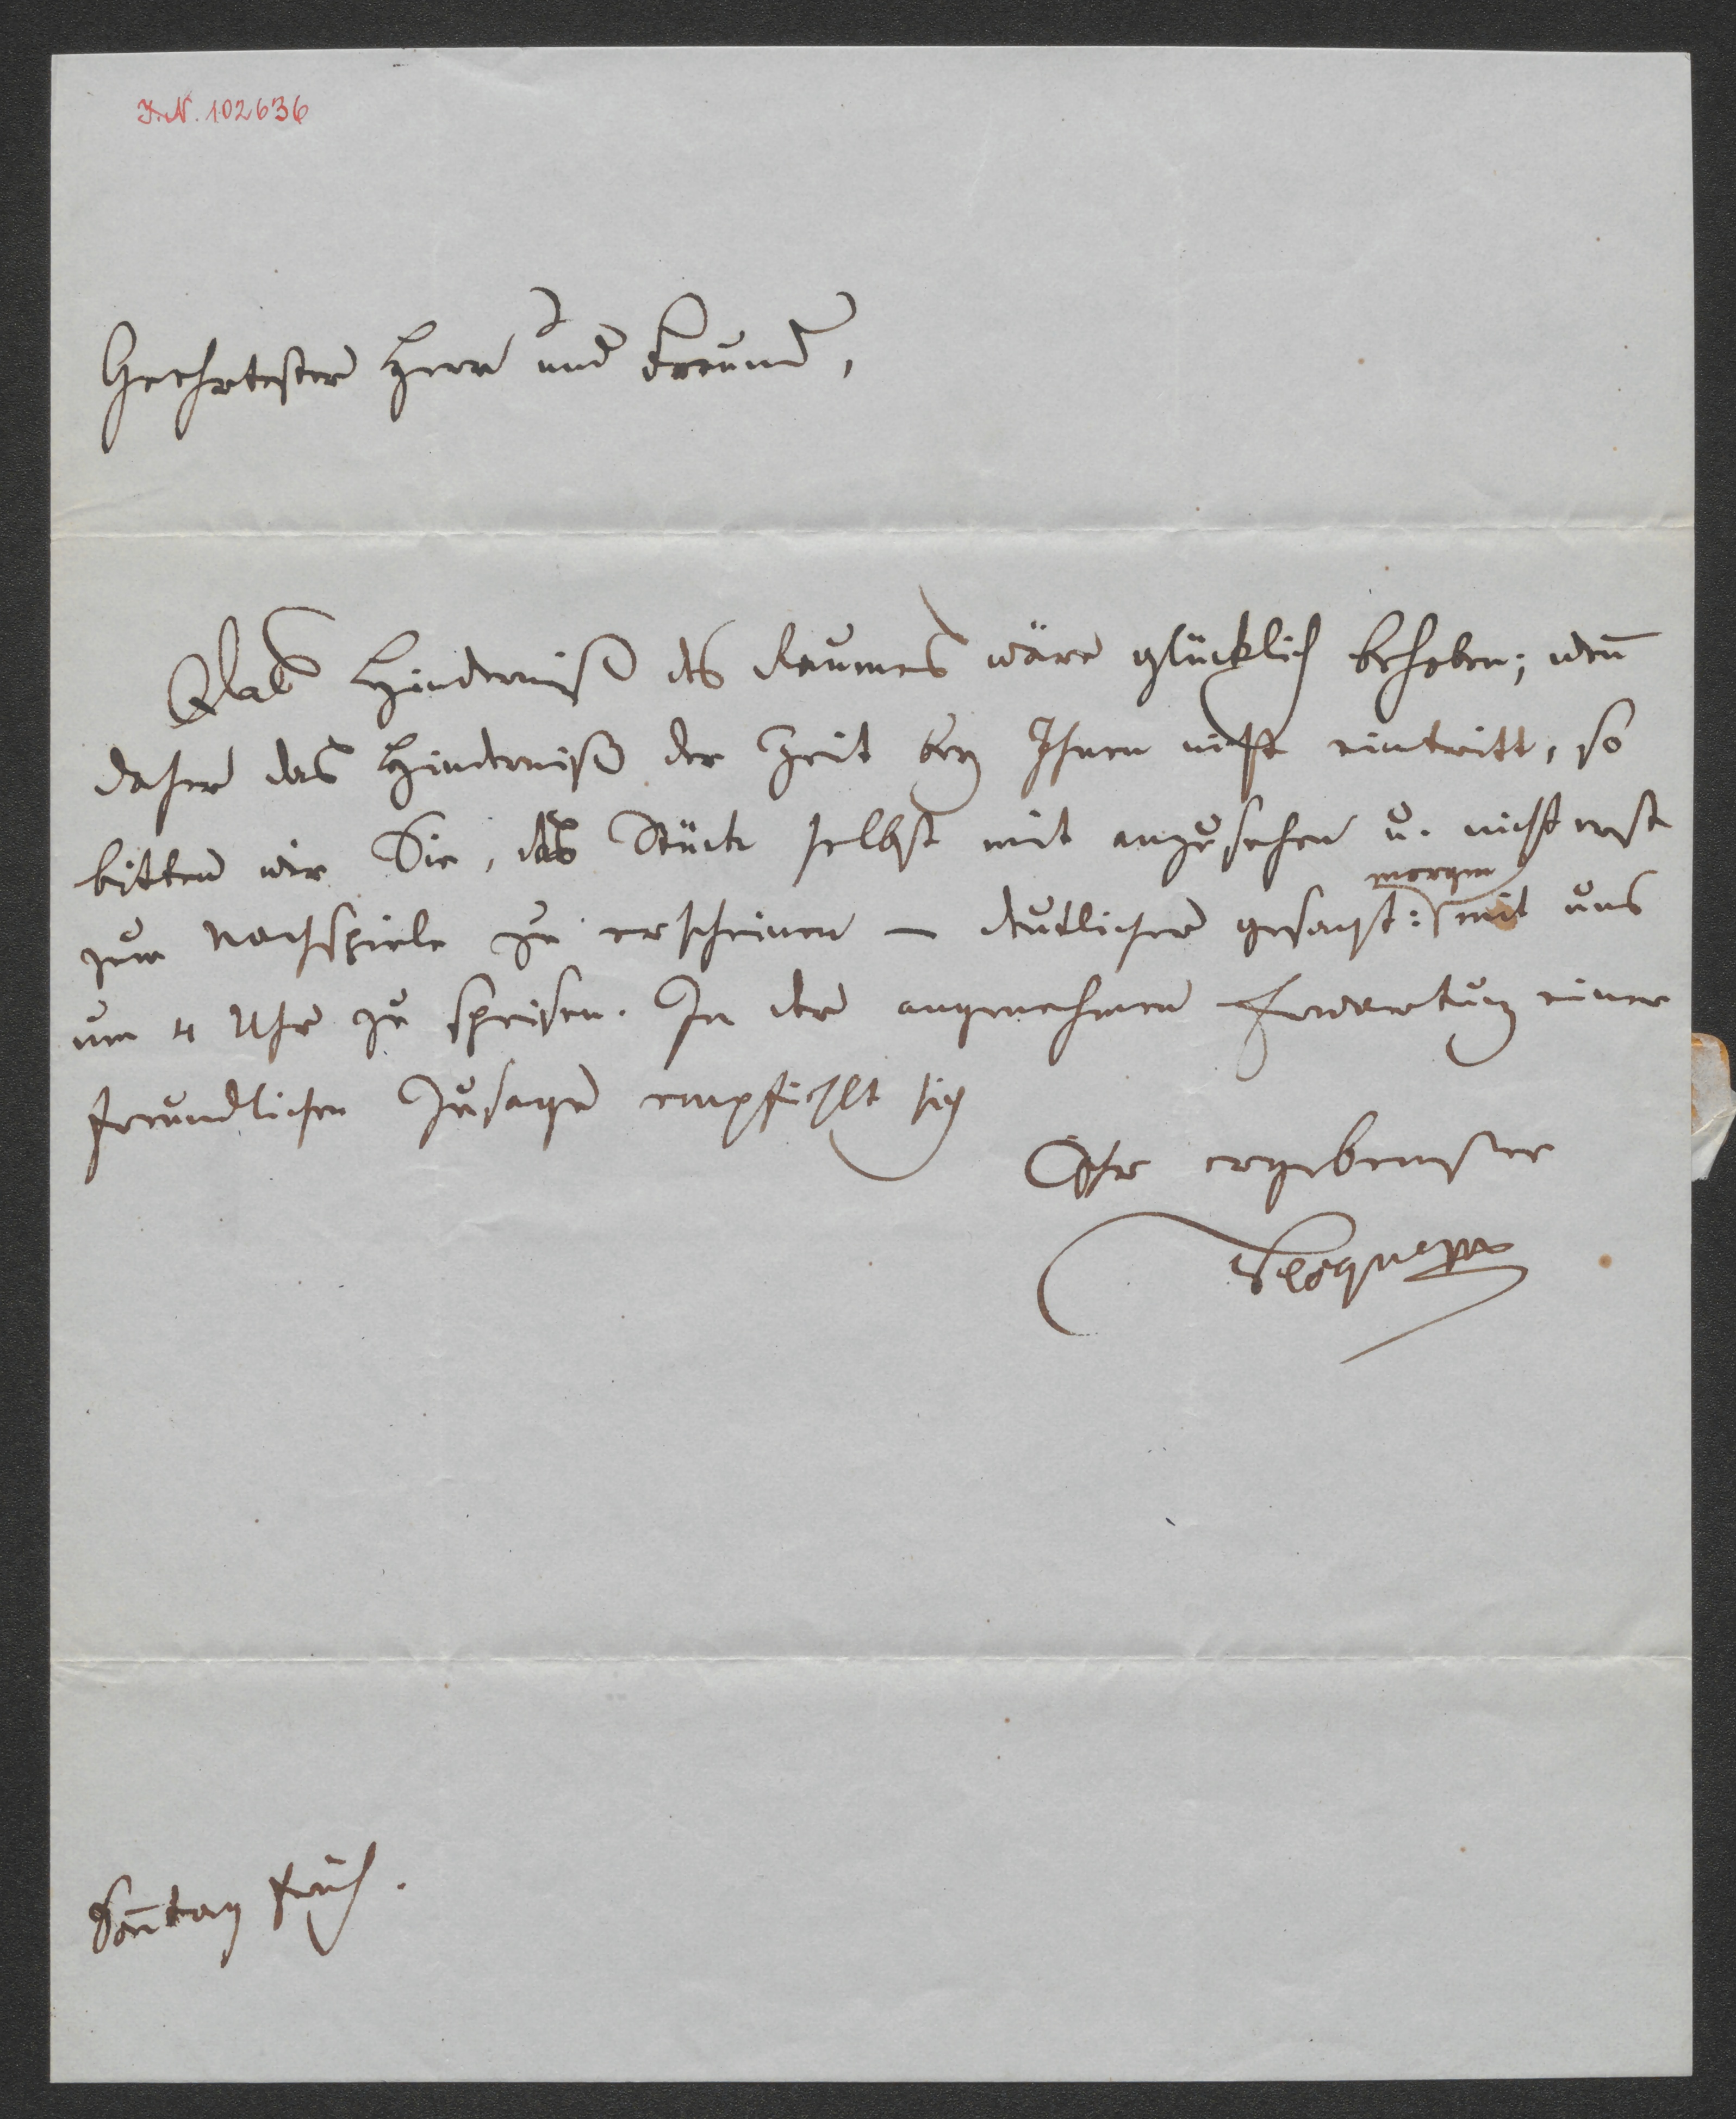 I.N. 102636
Geehrtester Herr und Freund,
Das Hinderniß des Raumes wäre glücklich behoben; weñ
daher das Hinderniß der Zeit bey Ihnen nicht eintritt, so
bitten wir Sie, das Stück selbst mit anzusehen u. nicht erst
morgen
zum Nachspiele zu erscheinen – deutlicher gesagt: mit uns
um 4 Uhr zu speisen. In der angenehmen Erwartung einer
freundlichen Zusage empfiehlt sich
Ihr ergebenster
Soñtag früh.